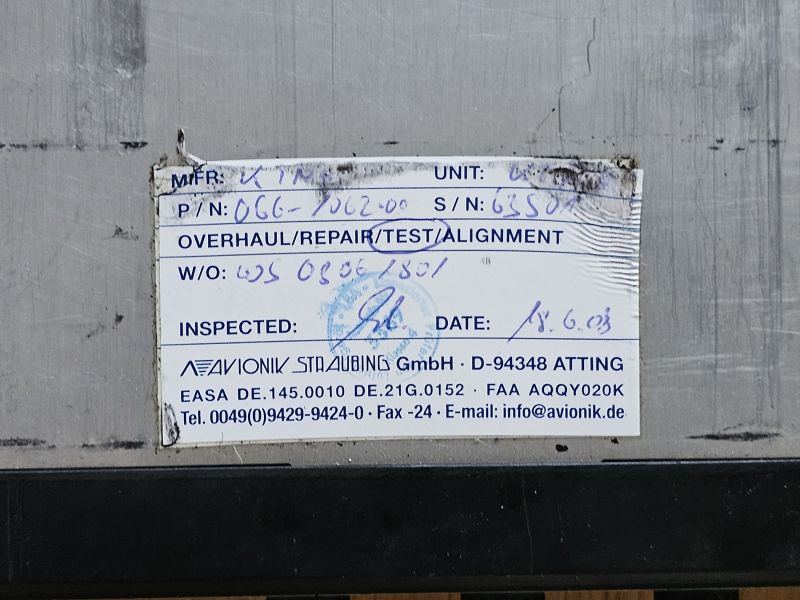 MFR: UNIT:
P/N: 066-1062-00 S/N: 6350
OVERHAUL/REPAIR/TEST/ALIGNMENT
W/O:
INSPECTED: DATE: 18.6.03
AVIONIK STRAUBING GmbH · D-94348 ATTING
EASA DE.145.0010 DE.21G.0152 · FAA AQQY020K
Tel. 0049(0)9429-9424-0 · Fax -24 · E-mail: info@avionik.de